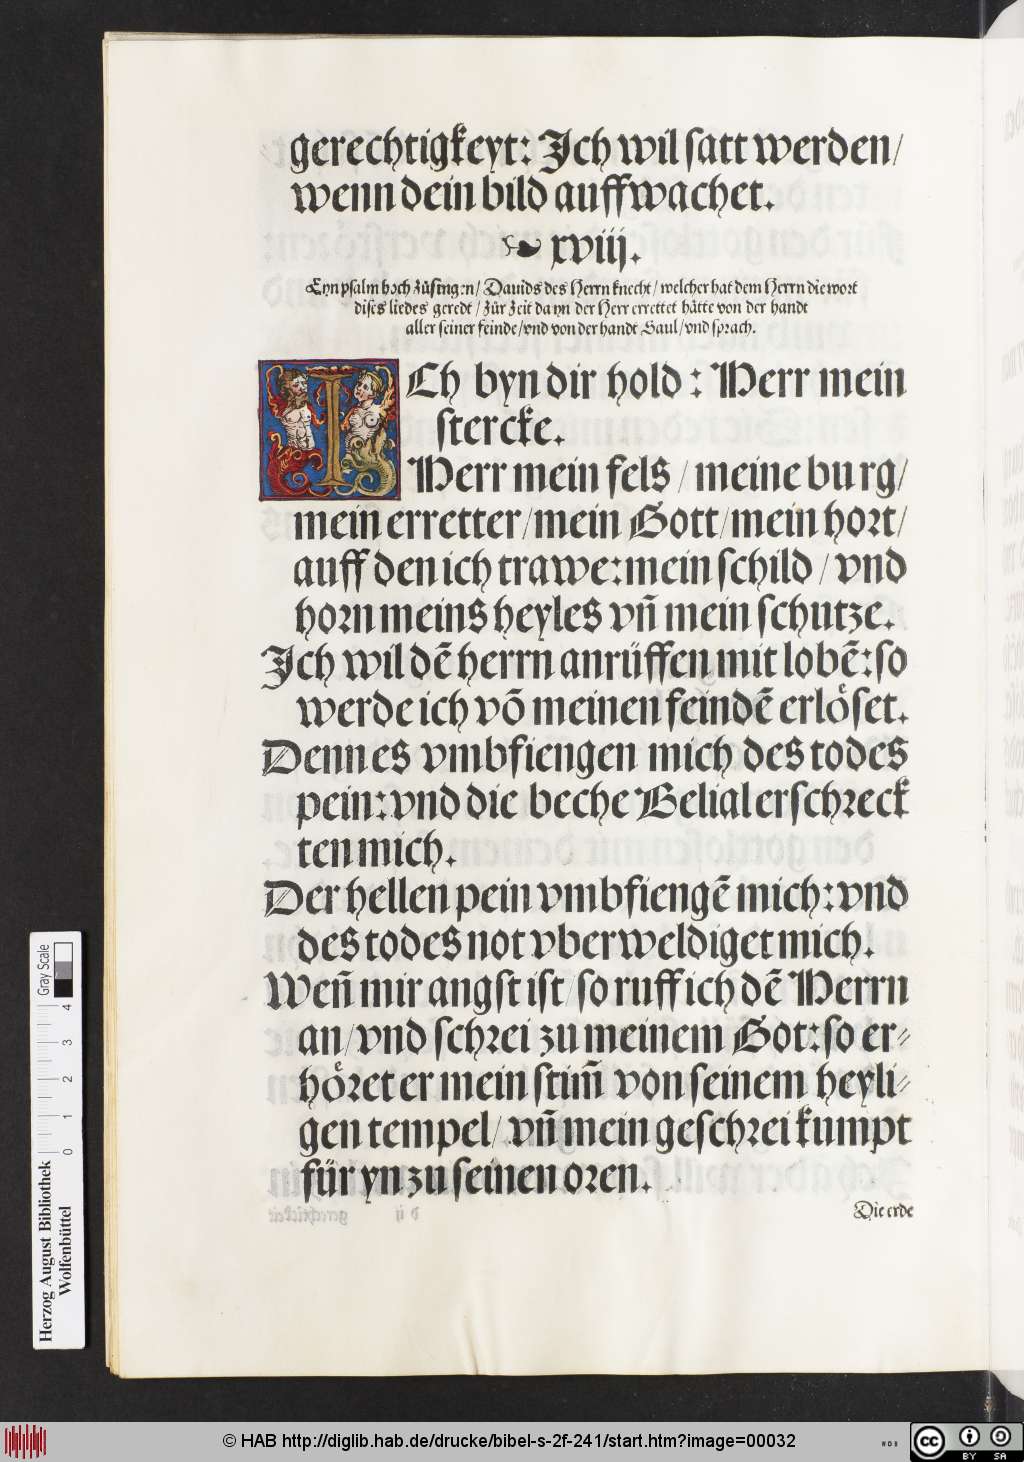 gerechtigkeyt: Jch wil satt werden/
wenn dein bild auffwachet.
❧ xviij.
Eyn psalm hoch zůsingen/ Dauids des Herrn knecht/ welcher hat dem Herrn die wort
dises liedes geredt/ zůr zeit da yn der Herr errettet hätte von der handt
aller seiner feinde/ vnd von der handt Saul/ vnd sprach.
ICh byn dir hold: Herr mein
stercke.
Herr mein fels/ meine burg/
mein erretter/ mein Gott/ mein hort/
auff den ich trawe: mein schild/ vnd
horn meins heyles vñ mein schutze.
Jch wil dē herrn anrüffen mit lobē: so
werde ich võ meinen feindē erlöset.
Denn es vmbfiengen mich des todes
pein: vnd die beche Belial erschreck
ten mich.
Der hellen pein vmbfiengē mich: vnd
des todes not vberweldiget mich.
Weñ mir angst ist/ so ruff ich dē Herrn
an/ vnd schrei zu meinem Got: so er⸗
höret er mein stim̃ von seinem heyli⸗
gen tempel/ vñ mein geschrei kumpt
für yn zu seinen oren.
Die erde
Herzog August Bibliothek
Wolfenbüttel
0 1 2 3 4
Gray Scale
© HAB http://diglib.hab.de/drucke/bibel-s-2f-241/start.htm?image=00032
WDB
cc BY SA